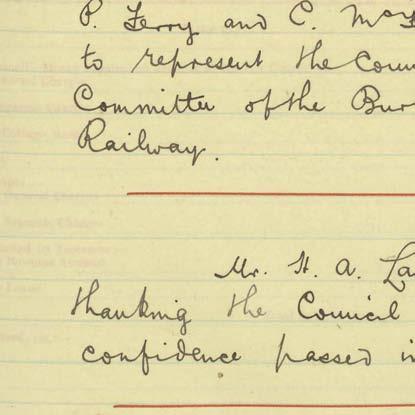 P. Ferry and C. McF
to represent the Coun
Committee of the Bur
Railway.
Mr. H. A. La
thanking the Council
confidence passed in